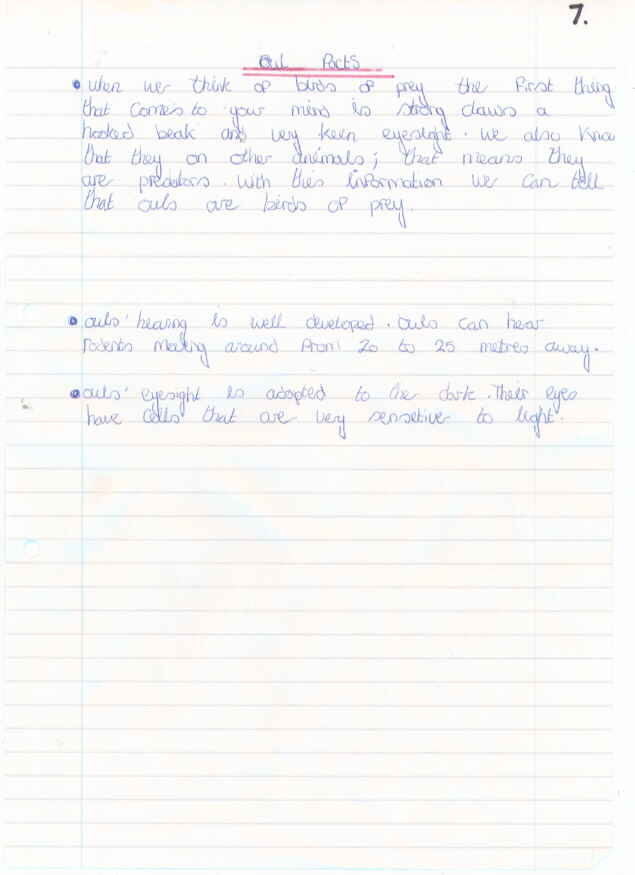 7.
Owl Facts
• when we think of birds of prey the first thing
that comes to your mind is strong claws a
hooked beak and very keen eyesight. we also know
that they on other animals; that means they
are predators. with this information we can tell
that owls are birds of prey.
• owls' hearing is well developed. owls can hear
rodents moving around from 20 to 25 metres away.
• owls' eyesight is adapted to the dark. Their eyes
have cells that are very sensetive to light.